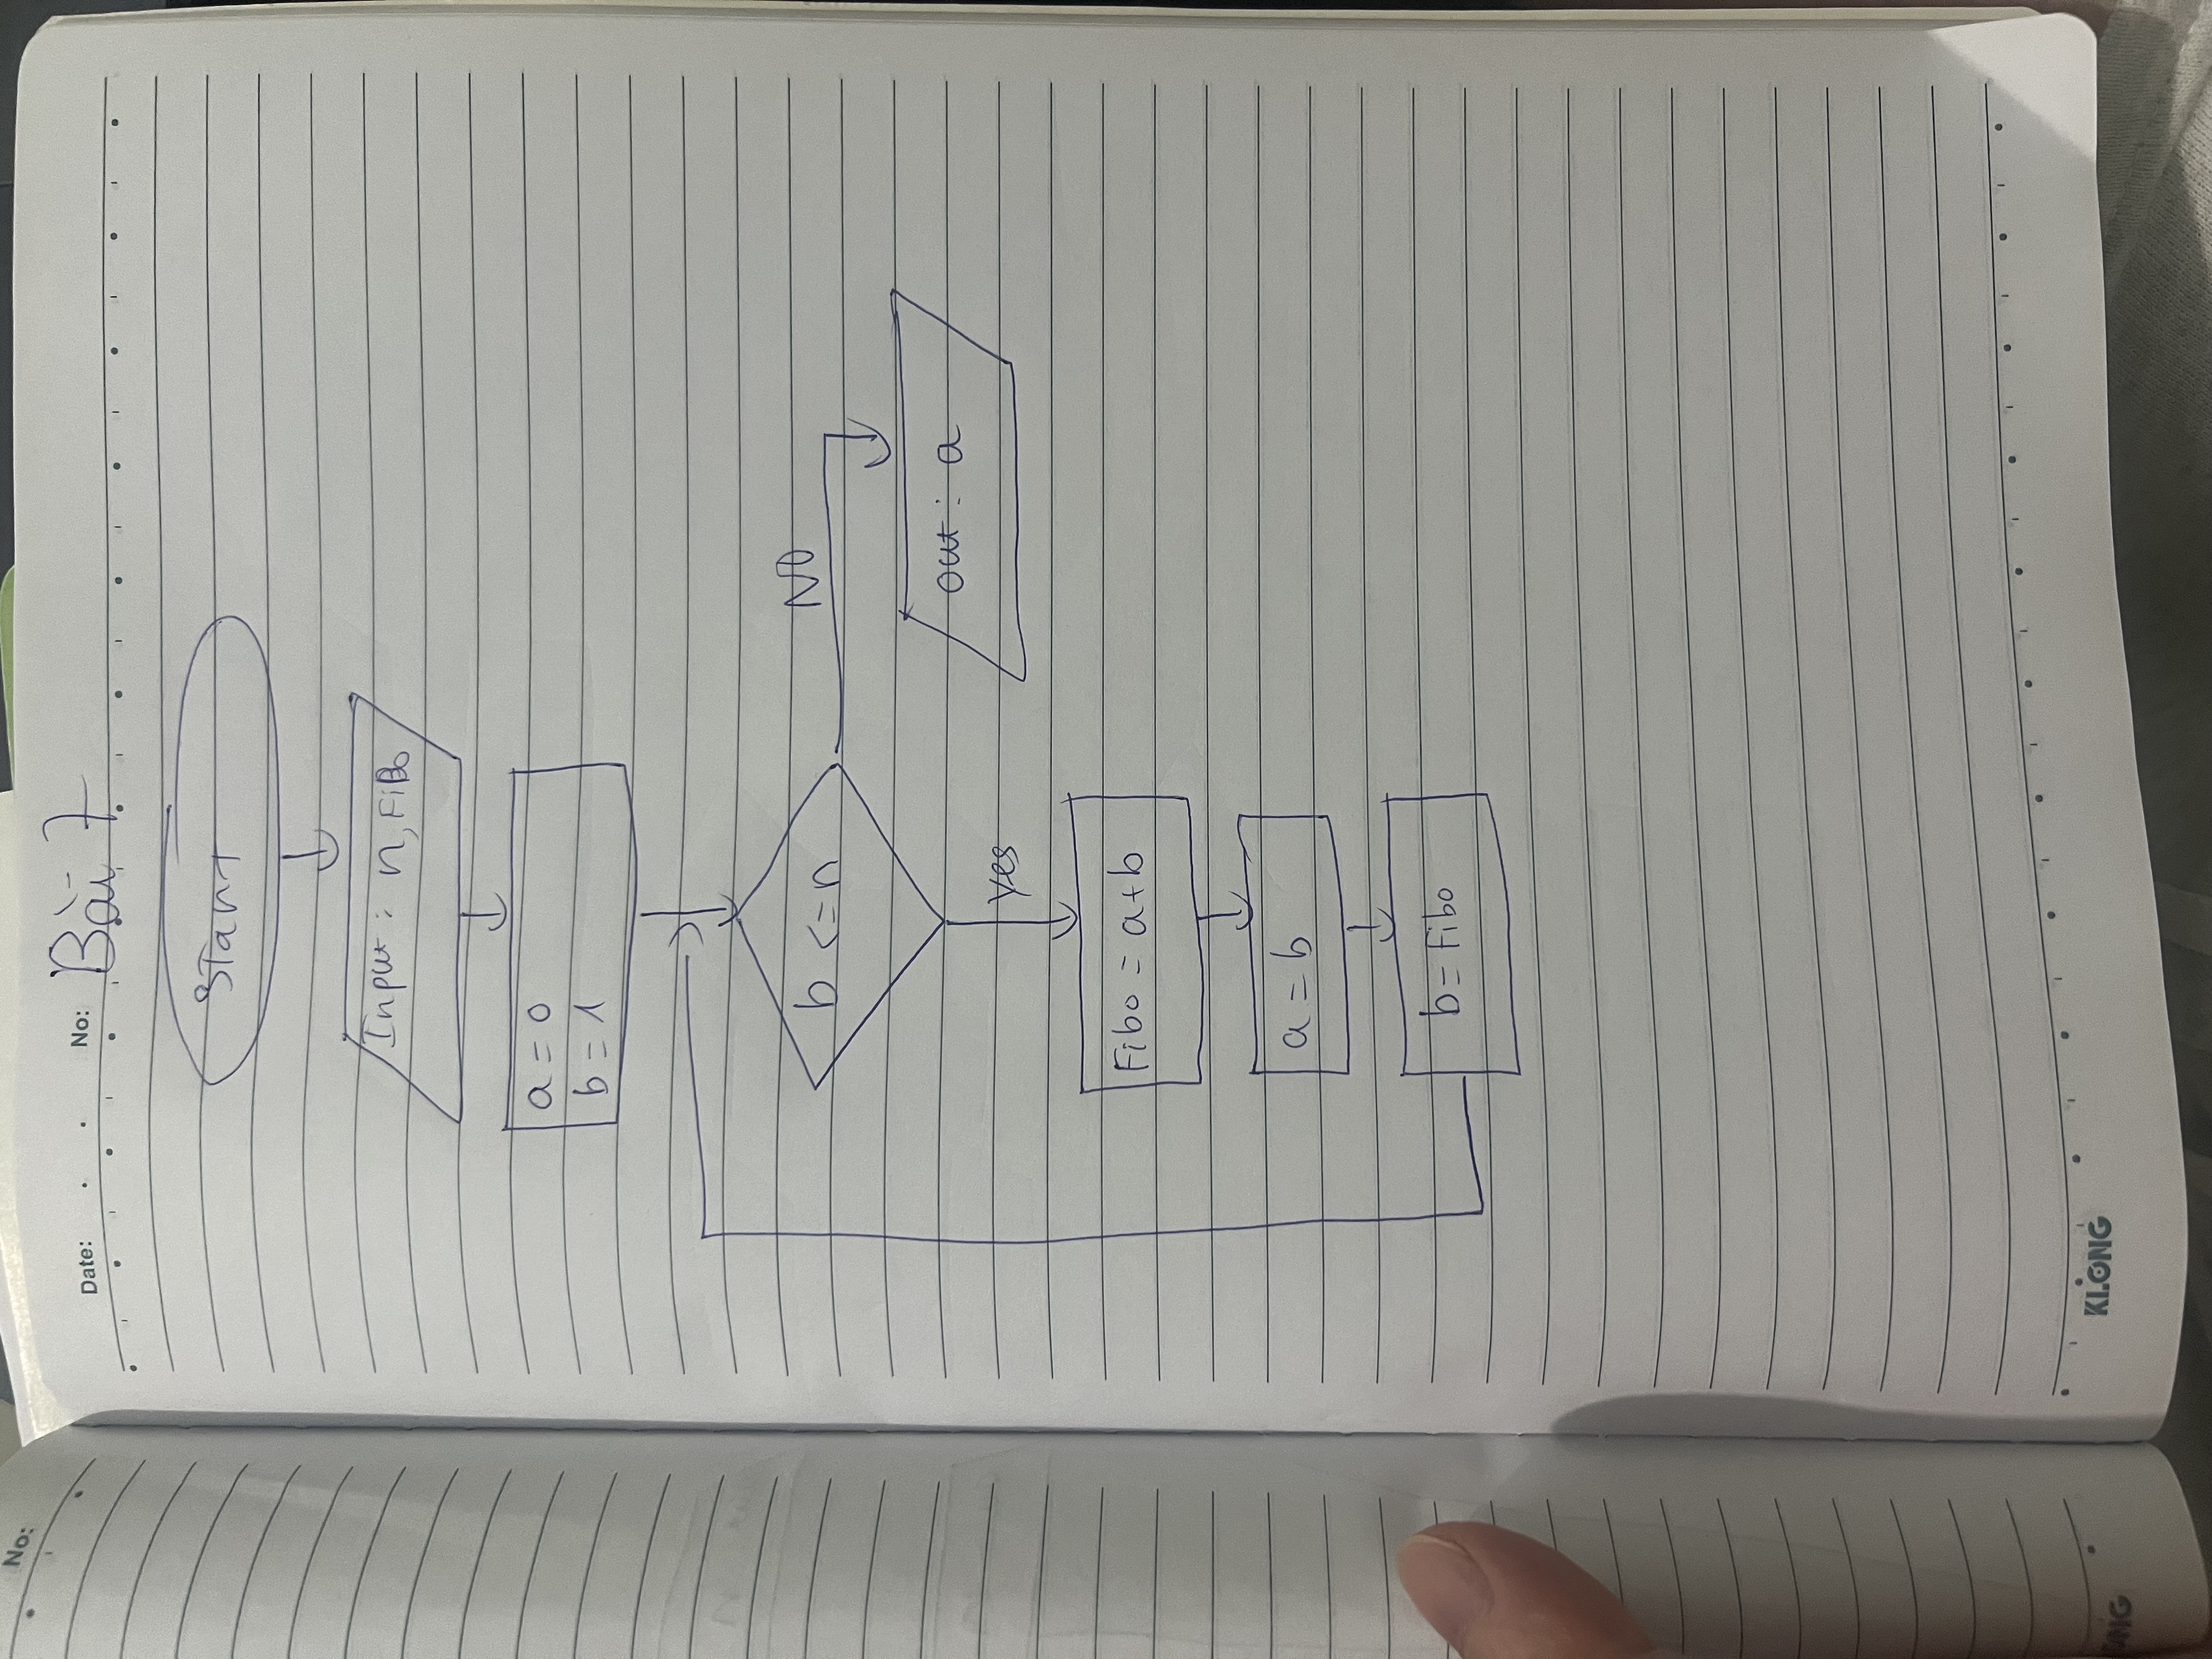 No:
Date: No: Bài 7
Start
Input: n, FiBo
a = 0
b = 1
b <= n
NO
out: a
yes
Fibo = a+b
a = b
b = Fibo
KLONG